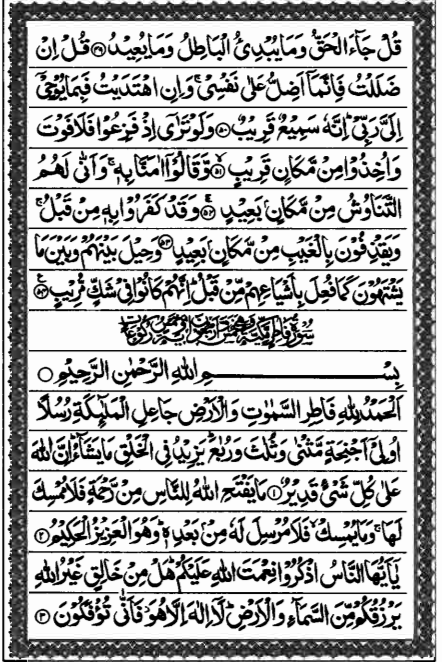 قُلْ جَآءَ الْحَقُّ وَمَا يُبْدِئُ الْبَاطِلُ وَمَا يُعِيْدُ ۝۴۹ قُلْ اِنْ
ضَلَلْتُ فَاِنَّمَاۤ اَضِلُّ عَلٰى نَفْسِيْ ۚ وَاِنِ اهْتَدَيْتُ فَبِمَا يُوْحِيْۤ
اِلَيَّ رَبِّيْ ؕ اِنَّهٗ سَمِيْعٌ قَرِيْبٌ ۝۵۰ وَلَوْ تَرٰۤى اِذْ فَزِعُوْا فَلَا فَوْتَ
وَاُخِذُوْا مِنْ مَّكَانٍ قَرِيْبٍ ۝۵۱ وَّقَالُوْۤا اٰمَنَّا بِهٖ ۚ وَاَنّٰى لَهُمُ
التَّنَاوُشُ مِنْ مَّكَانٍۭ بَعِيْدٍ ۝۵۲ وَّقَدْ كَفَرُوْا بِهٖ مِنْ قَبْلُ ۚ
وَيَقْذِفُوْنَ بِالْغَيْبِ مِنْ مَّكَانٍۭ بَعِيْدٍ ۝۵۳ وَحِيْلَ بَيْنَهُمْ وَبَيْنَ مَا
يَشْتَهُوْنَ كَمَا فُعِلَ بِاَشْيَاعِهِمْ مِّنْ قَبْلُ ؕ اِنَّهُمْ كَانُوْا فِيْ شَكٍّ مُّرِيْبٍ ۝۵۴
سُوْرَةُ فَاطِرٍ مَكِّيَّةٌ
بِسْمِ اللّٰهِ الرَّحْمٰنِ الرَّحِيْمِ ۝
اَلْحَمْدُ لِلّٰهِ فَاطِرِ السَّمٰوٰتِ وَالْاَرْضِ جَاعِلِ الْمَلٰٓئِكَةِ رُسُلًا
اُولِيْۤ اَجْنِحَةٍ مَّثْنٰى وَثُلٰثَ وَرُبٰعَ ؕ يَزِيْدُ فِي الْخَلْقِ مَا يَشَآءُ ؕ اِنَّ اللّٰهَ
عَلٰى كُلِّ شَيْءٍ قَدِيْرٌ ۝۱ مَا يَفْتَحِ اللّٰهُ لِلنَّاسِ مِنْ رَّحْمَةٍ فَلَا مُمْسِكَ
لَهَا ۚ وَمَا يُمْسِكْ ۙ فَلَا مُرْسِلَ لَهٗ مِنْۢ بَعْدِهٖ ؕ وَهُوَ الْعَزِيْزُ الْحَكِيْمُ ۝۲
يٰۤاَيُّهَا النَّاسُ اذْكُرُوْا نِعْمَتَ اللّٰهِ عَلَيْكُمْ ؕ هَلْ مِنْ خَالِقٍ غَيْرُ اللّٰهِ
يَرْزُقُكُمْ مِّنَ السَّمَآءِ وَالْاَرْضِ ؕ لَاۤ اِلٰهَ اِلَّا هُوَ ۖ فَاَنّٰى تُؤْفَكُوْنَ ۝۳